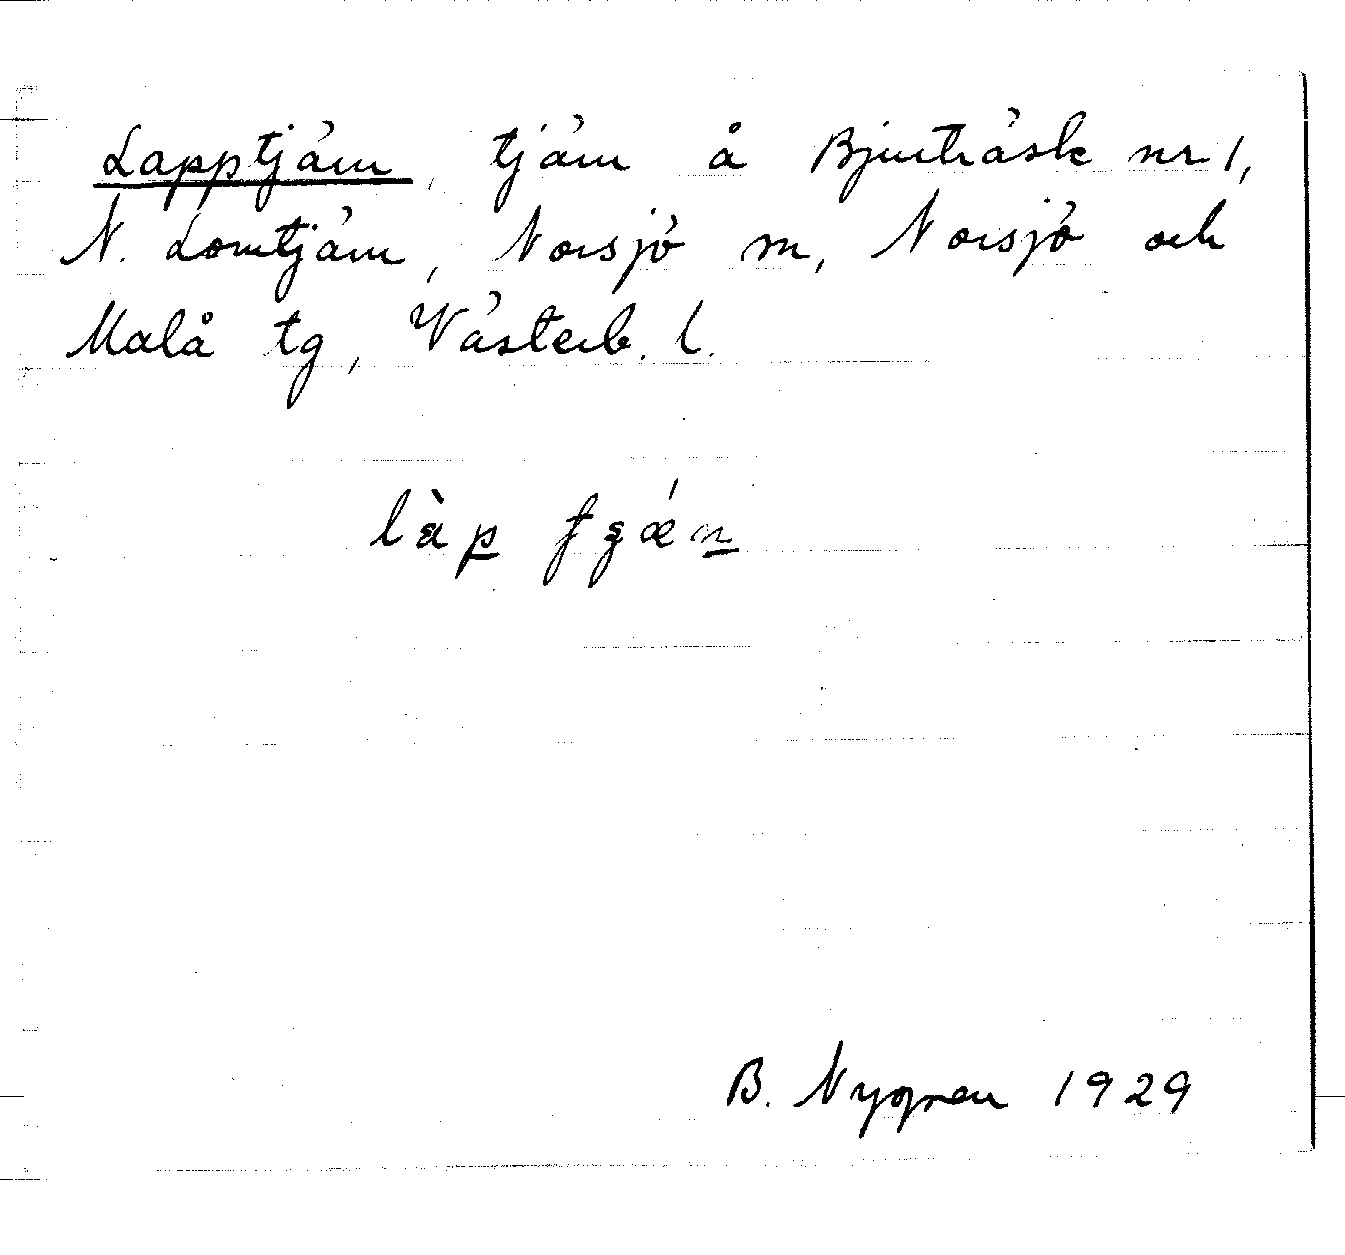 Lapptjärn, tjärn å Bjurträsk nr 1,
N. Lomtjärn, Norsjö sn, Norsjö och
Malå tg, Västerb. l.
B. Nygren 1929